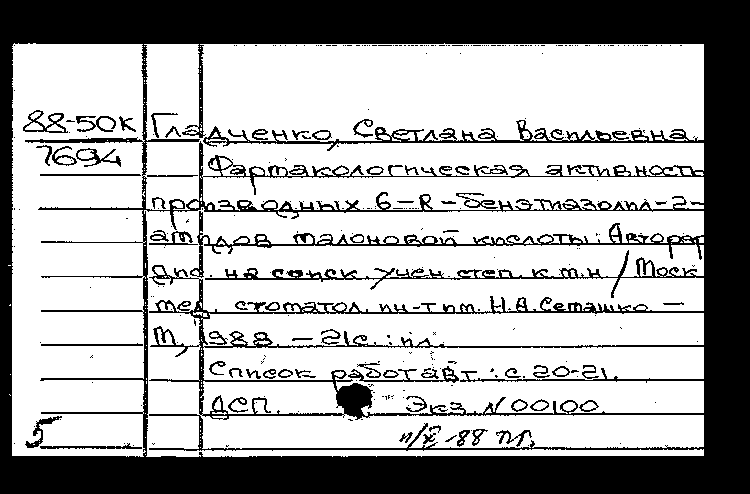 88-50К Гладченко, Светлана Васильевна.
7694 Фармакологическая активность
производных 6-R-бензтиазолил-2-
амидов малоновой кислоты: Автореф
дис. на соиск. учен. степ. к.м.н. / Моск
мед. стоматол. ин-т им. Н.А. Семашко. —
М., 1988. — 21с. : ил.
Список работ авт.: с. 20-21.
ДСП. Экз. N 00100.
5 п/X -88